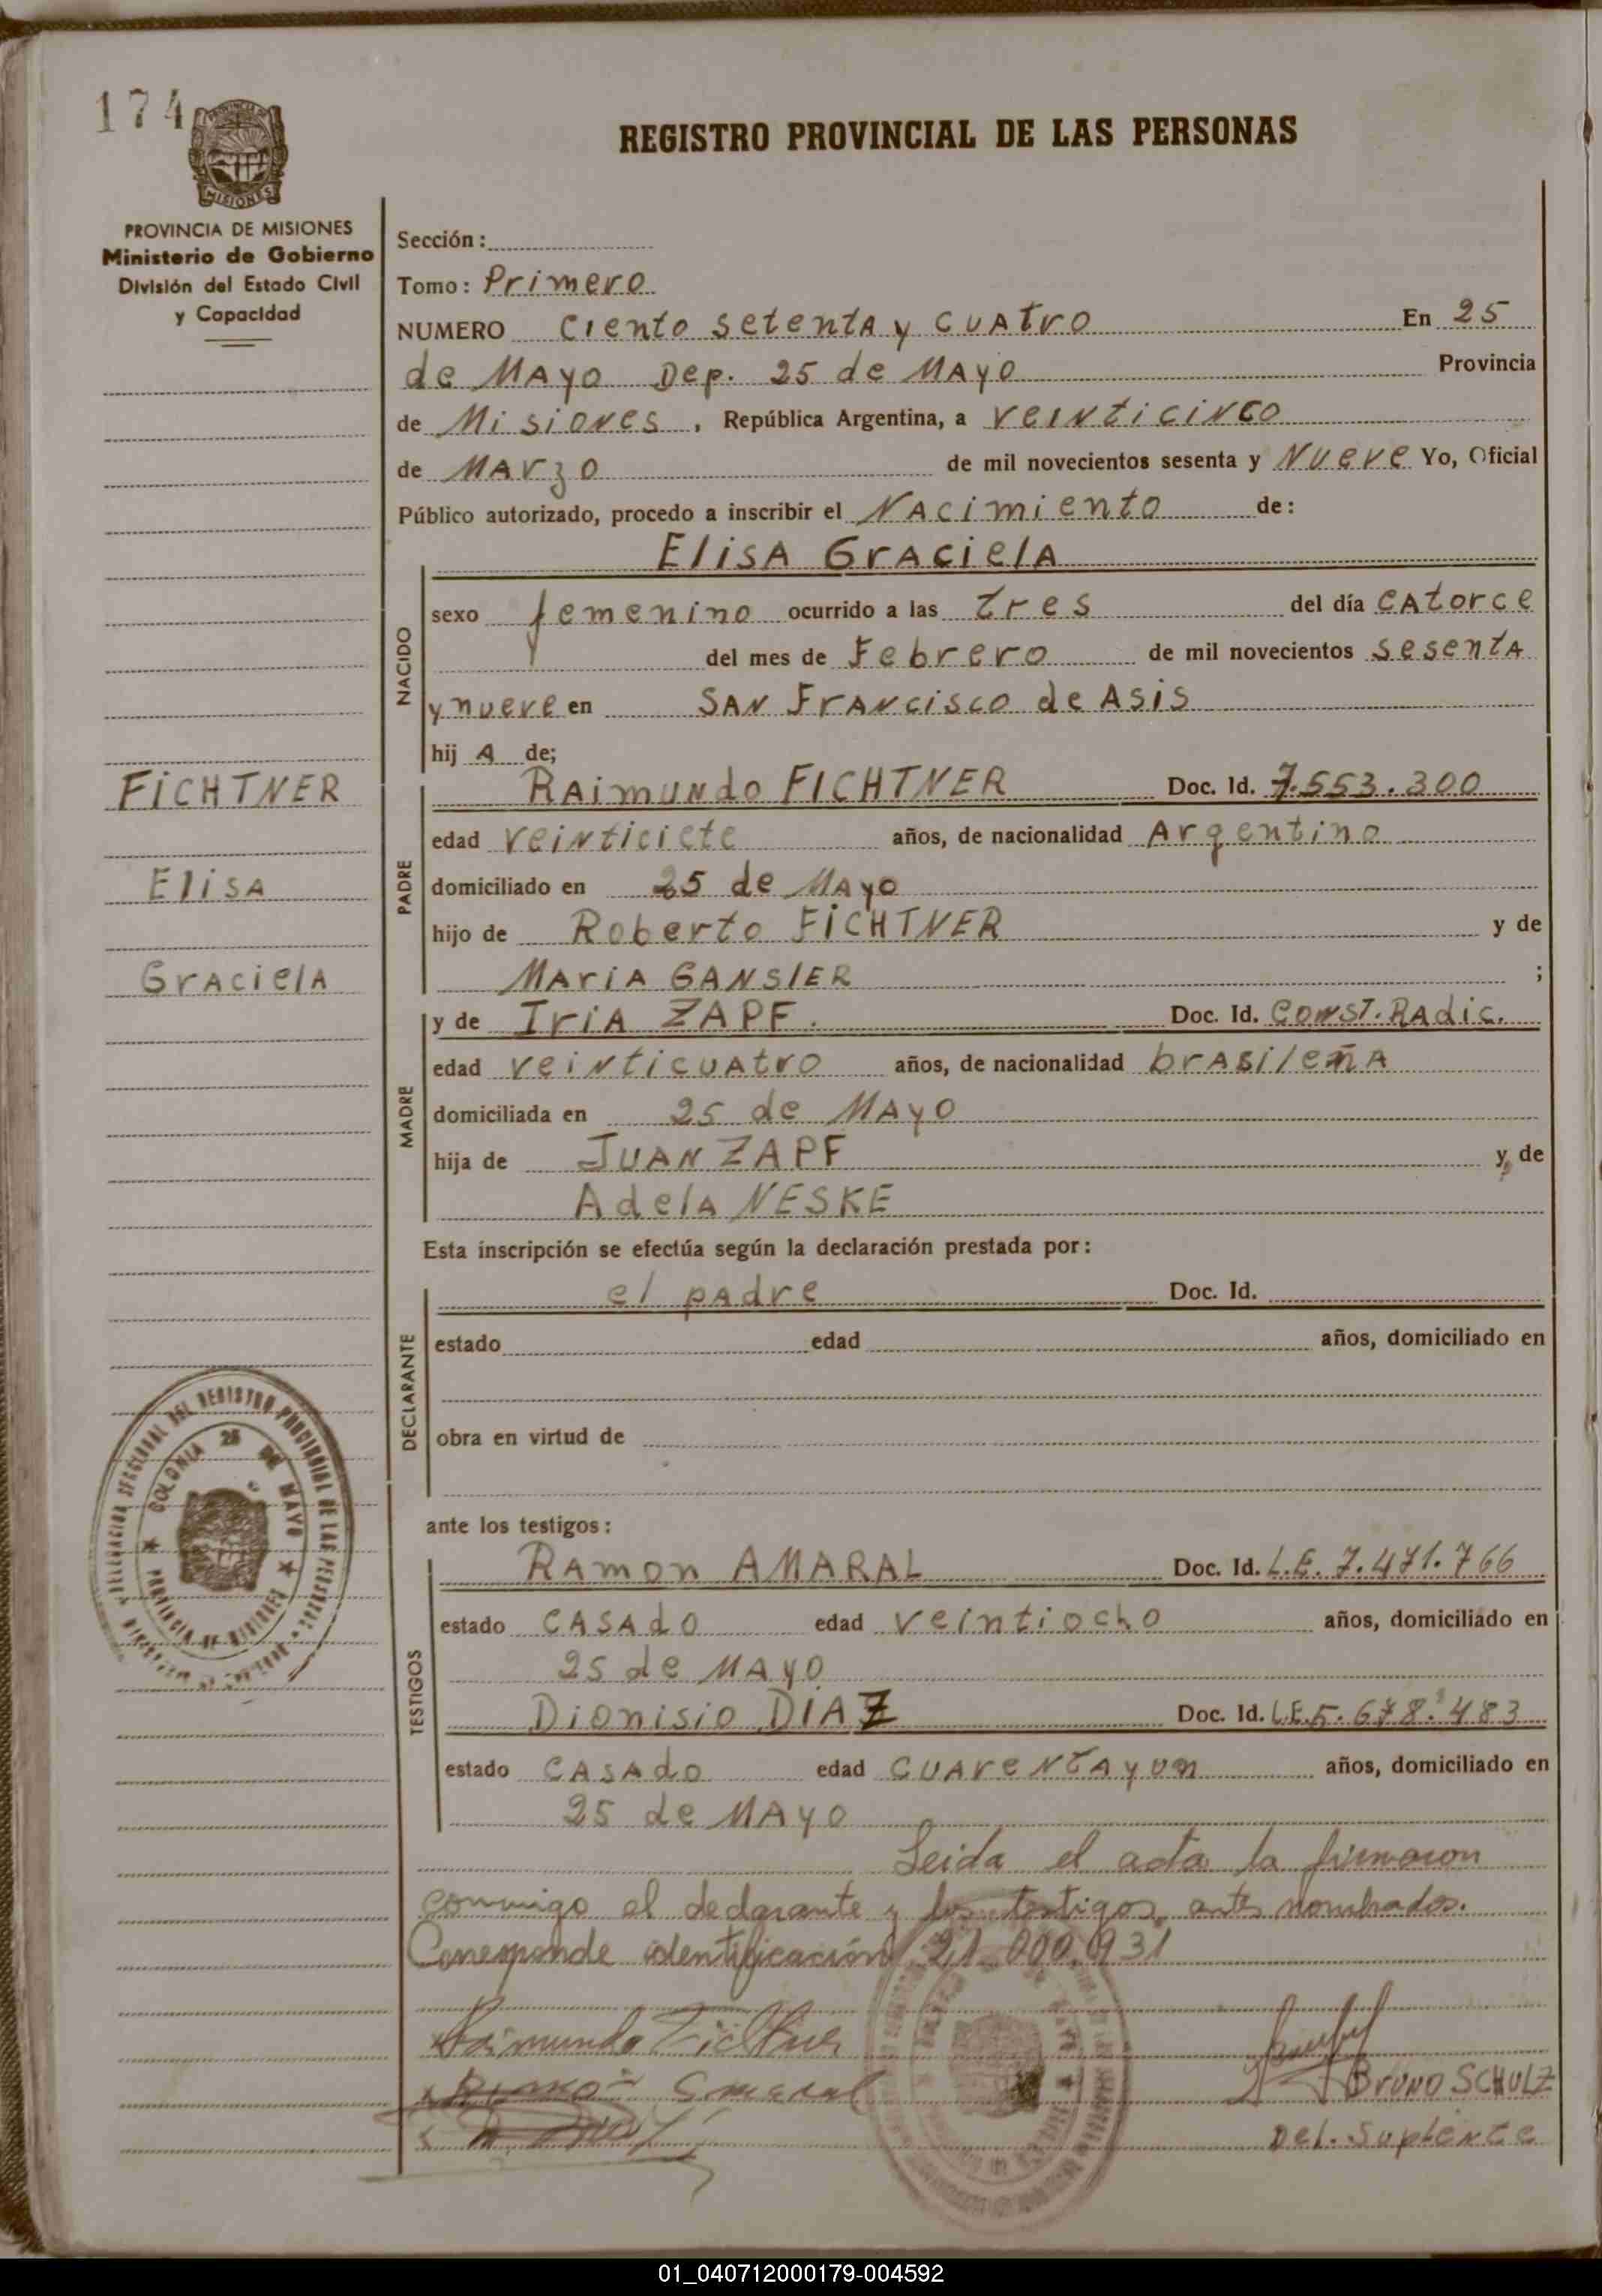 174
REGISTRO PROVINCIAL DE LAS PERSONAS
MISIONES
PROVINCIA DE MISIONES
Ministerio de Gobierno
División del Estado Civil
y Capacidad
Sección:
Tomo: Primero
NUMERO Ciento setenta y cuatro En 25
de Mayo Dep. 25 de Mayo Provincia
de Misiones, República Argentina, a veinticinco
de Marzo de mil novecientos sesenta y Nueve Yo, Oficial
Público autorizado, procedo a inscribir el Nacimiento de:
Elisa Graciela
NACIDO
sexo femenino ocurrido a las tres del día catorce
del mes de Febrero de mil novecientos sesenta
y nueve en San Francisco de Asis
hij a de;
FICHTNER
Elisa
Graciela
PADRE
Raimundo FICHTNER Doc. Id. 7.553.300
edad veinticiete años, de nacionalidad Argentino
domiciliado en 25 de Mayo
hijo de Roberto FICHTNER y de
Maria GANSLER ;
MADRE
y de Iria ZAPF. Doc. Id. Const. Radic.
edad veinticuatro años, de nacionalidad brasileña
domiciliada en 25 de Mayo
hija de Juan ZAPF y de
Adela NESKE
Esta inscripción se efectúa según la declaración prestada por:
DECLARANTE
el padre Doc. Id.
estado edad años, domiciliado en
obra en virtud de
DELEGACION SECCIONAL DEL REGISTRO PROVINCIAL DE LAS PERSONAS
COLONIA 25 DE MAYO
PROVINCIA DE MISIONES
ante los testigos:
TESTIGOS
Ramon AMARAL Doc. Id. L.E. 7.471.766
estado casado edad veintiocho años, domiciliado en
25 de Mayo
Dionisio DIAZ Doc. Id. L.E. 5.678.483
estado casado edad cuarenta y un años, domiciliado en
25 de Mayo
Leida el acta la firmaron
conmigo el declarante y los testigos antes nombrados.
Corresponde identificación 21.000.931
Raimundo Fichtner
Bruno SCHULZ
Del. Suplente
01_040712000179-004592